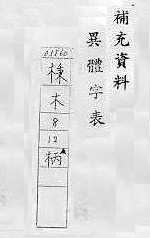 補充資料
異體字表
01560
棟
木
8
12
柄